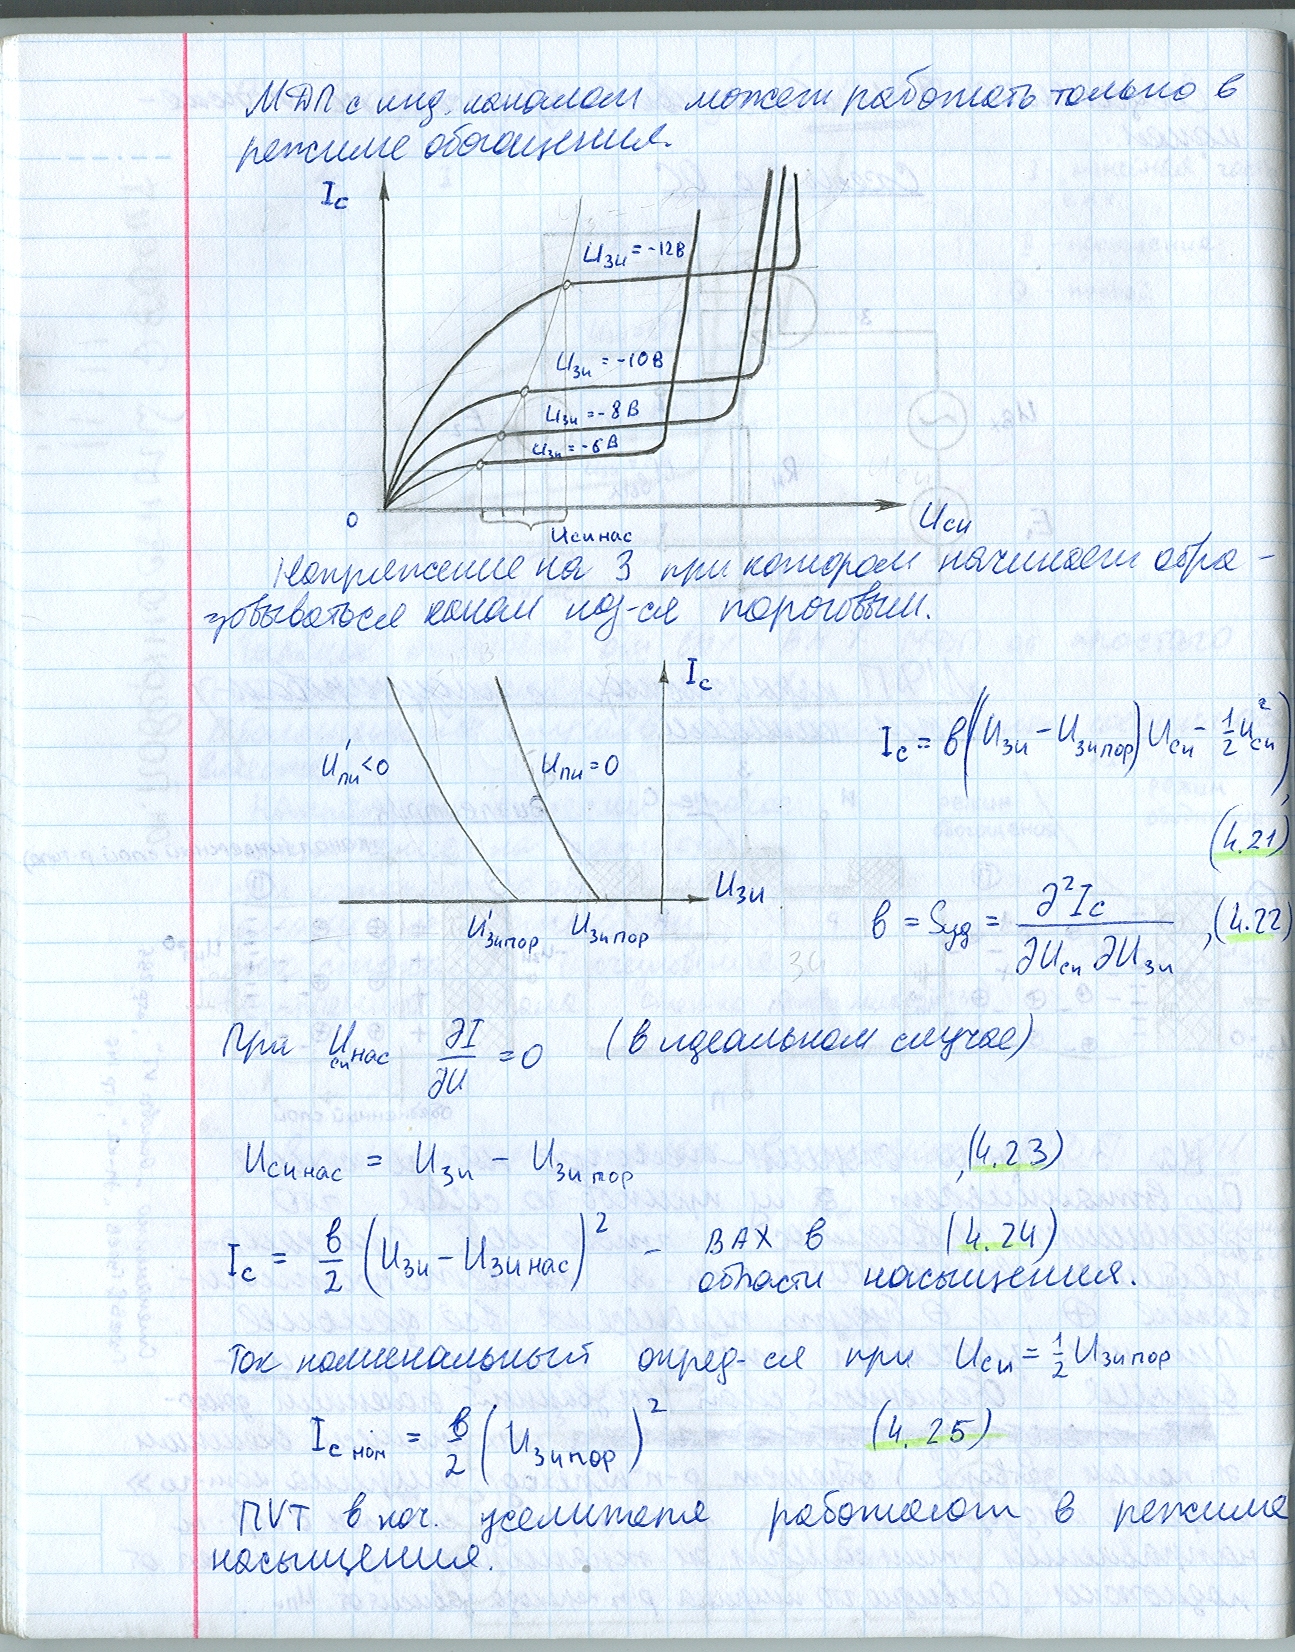 МДП с инд. каналом может работать только в
режиме обогащения.
I_c
U_зи = -12В
U_зи = -10В
U_зи = -8В
U_зи = -6В
0
U_си нас
U_си
Напряжение на З при котором начинает обра-
зовываться канал наз-ся пороговым.
I_c
U'_пи < 0
U_пи = 0
U_зи
U'_зи пор
U_зи пор
I_c = в((U_зи - U_зи пор) U_си - 1/2 U²_си),
(4.21)
в = S_уд = ∂²I_c / ∂U_си ∂U_зи , (4.22)
При U_си нас ∂I/∂U = 0 (в идеальном случае)
U_си нас = U_зи - U_зи пор , (4.23)
I_c = в/2 (U_зи - U_зи нас)² - ВАХ в (4.24)
области насыщения.
Ток номинальный опред-ся при U_си = 1/2 U_зи пор
I_c ном = в/2 (U_зи пор)² (4.25)
ПVT в кач. усилителя работают в режиме
насыщения.